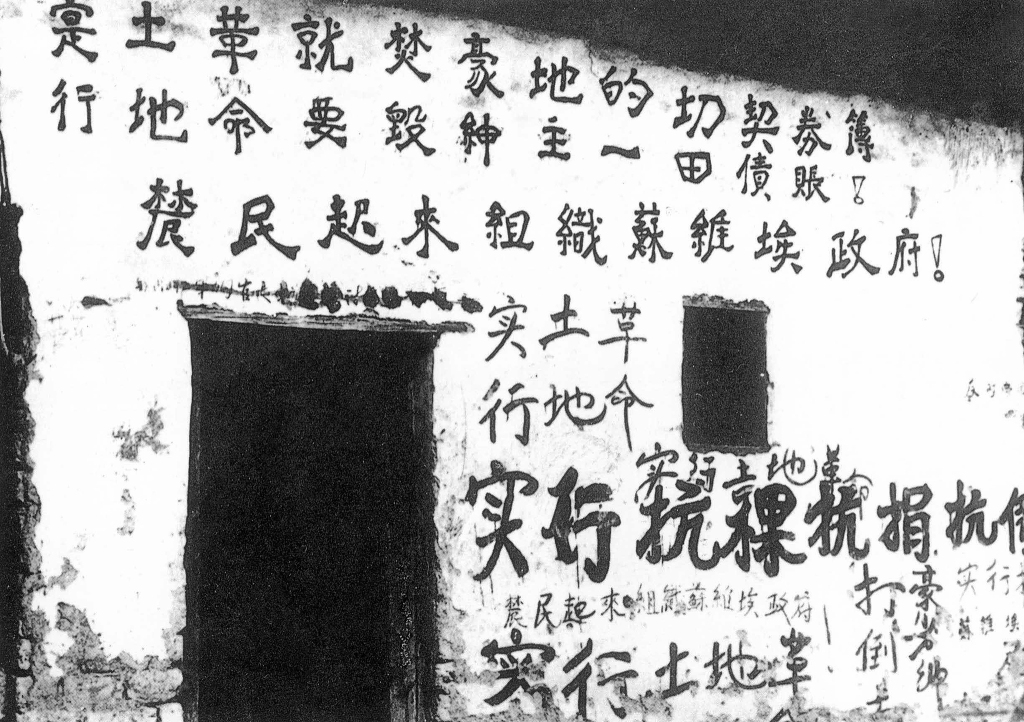 寔行土地革命就要焚毀豪紳地主的一切田契債券賬簿!
辳民起來組織蘇維埃政府!
实行土地革命
实行土地革命
实行抗稞抗捐抗
打倒土豪劣紳
辳民起來組織蘇維埃政府!
实行土地革命
实行
蘇維埃